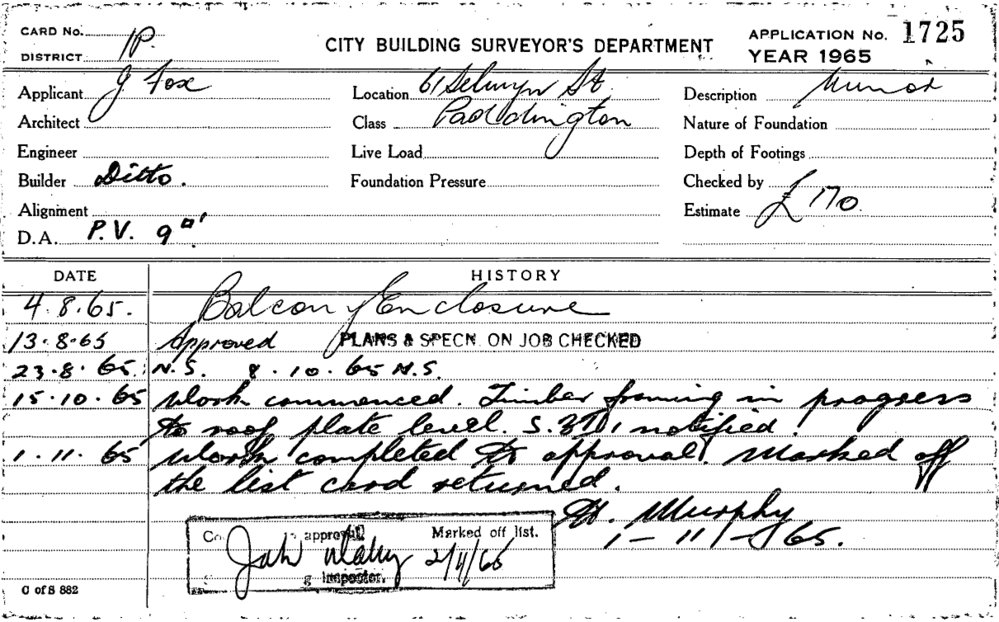 CARD No.
DISTRICT 1P.
CITY BUILDING SURVEYOR'S DEPARTMENT
APPLICATION No. 1725
YEAR 1965
Applicant J Fox
Location 61 Selwyn St
Description Minor
Architect
Class Paddington
Nature of Foundation
Engineer
Live Load
Depth of Footings
Builder Ditto.
Foundation Pressure
Checked by
Alignment
Estimate £ 170
D.A. P.V. 9
DATE
HISTORY
4.8.65. Balcony Enclosure
13.8.65 Approved PLANS & SPECN. ON JOB CHECKED
23.8.65. N.S. 8.10.65 N.S.
15.10.65 Work commenced. Timber framing in progress
to roof plate level. notified.
1.11.65 Work completed to approval. Marked off
the list card returned.
Murphy
1-11-65.
approval Marked off list.
2/11/65
Inspector.
C of S 882